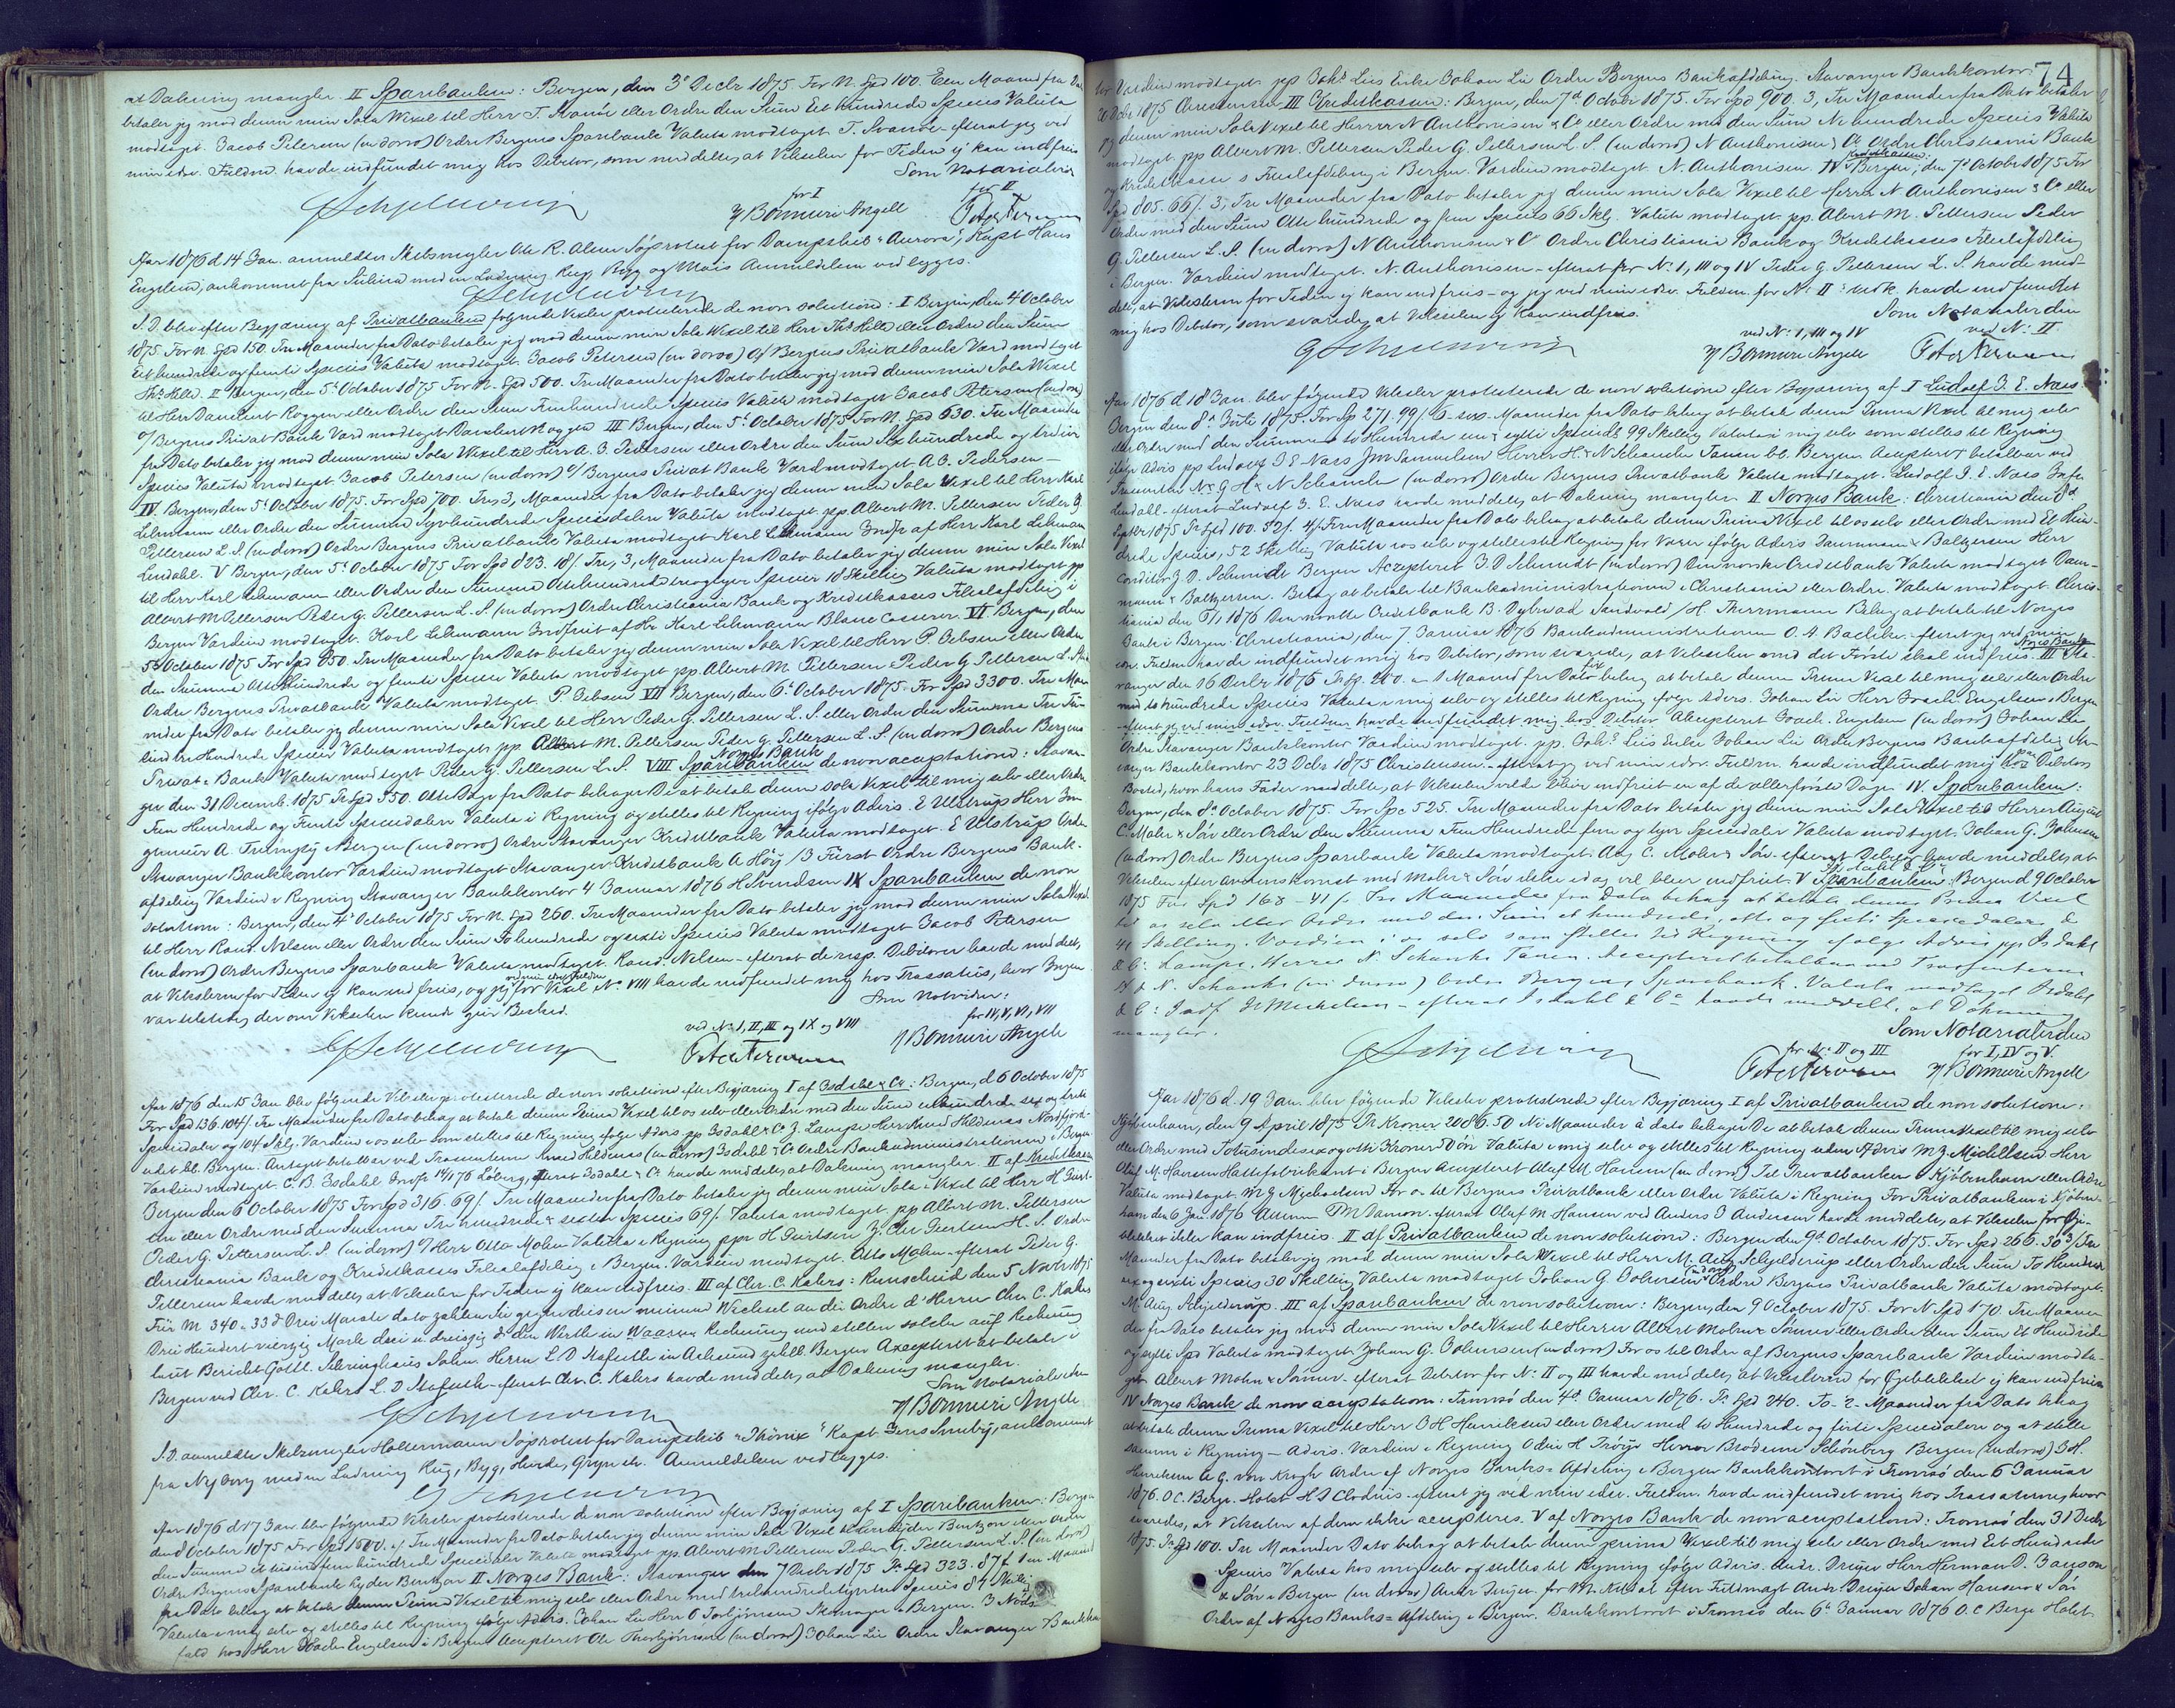 at Dækning mangler. II Sparebanken: Bergen, den 3e Decbr 1875. For N. Spd 100. Een Maaned fra Dato
betaler jeg mod denne min Sola Wexel til Herr T. Svanøe eller Ordre den Sum Et hundrede Species Valuta
modtaget. Jacob Petersen (in dorso) Ordre Bergens Sparebank Valuta modtaget. T. Svanöe - efterat jeg ved
min edsv. Fuldm. havde indfundet mig hos Debitor, som meddelte, at Vekselen for Tiden ej kan indfries
Som Notarialvidner
for I for II
Aar 1876 d 14 Jan. anmeldte Skibsmægler Ole R. Olsen Søprotest for Dampskib "Aurora", Kapt Hans
Engelsen, ankommet fra Sulina med en Ladning Rug, Byg og Mais. Anmeldelsen vedlægges.
S. D. blev efter Begjæring af Privatbanken følgende Vexler protesterede de non solutione: I Bergen, den 4 October
1875. For N. Spd 150. Tre Maaneder fra Dato betaler jeg mod denne min Sola Wexel til Herr Ths Held eller Ordre den Sum
Et hundrede og femti Species Valuta modtaget. Jacob Petersen (in dorso) O/ Bergens Privatbank Værd modtaget
Ths Held. II Bergen, den 5t October 1875 For N. Spd 500. Tre Maaneder fra Dato betaler jeg mod denne min Sola Wexel
til Herr Danckert Roggen eller Ordre den Sum Femhundrede Species Valuta modtaget Jacob Petersen (in dorso)
o/ Bergens Privat Bank Værd modtaget Danckert Roggen III Bergen, den 5t October 1875. For N. Spd 630. Tre Maaneder
fra Dato betaler jeg mod denne min Sola Wexel til Herr A. B. Pedersen eller Ordre den Sum Sexhundrede og tredive
Species Valuta modtaget. Jacob Petersen (in dorso) o/ Bergens Privat Bank Værd modtaget A. B. Pedersen -
IV Bergen, den 5t October 1875. For Spd 700. Tre, 3, Maaneder fra Dato betaler jeg denne min Sola Wexel til Herr Karl
Lehmann eller Ordre den Summa Syvhundrede Speciedalere Valuta modtaget pp Albert M. Pettersen Peder G.
Pettersen L. S. (in dorso) Ordre Bergens Privatbank Valuta modtaget Karl Lehmann Indfr af Herr Karl Lehmann
Lindahl. V Bergen, den 5t October 1875 For Spd 823. 18/. Tre, 3, Maaneder fra Dato betaler jeg denne min Sola Vexel
til Herr Karl Lehmann eller Ordre den Summa Ottehundrede treogtyve Species 18 Skilling Valuta modtaget pp
Albert M Pettersen Peder G. Pettersen L. S. (in dorso) Ordre Christiania Bank og Kreditkasses Filialafdeling i
Bergen Værdien modtaget. Karl Lehmann Indfriet af Hr Karl Lehmann Blanc Casserer. VI Bergen, den
5te October 1875 For Spd 850. Tre Maaneder fra Dato betaler jeg denne min Sola Vexel til Herr P. Jebsen eller Ordre
den Summa Ottehundrede og femti Species Valuta modtaget pp Albert M. Pettersen Peder G Pettersen L. S.
Ordre Bergens Privatbank Valuta modtaget. P. Jebsen VII Bergen, den 6t October 1875. For Spd 3300. Tre Maa-
neder fra Dato betaler jeg denne min Sola Vexel til Herr Peder G. Pettersen L. S. eller Ordre den Summa Tre Tu-
sind tre Hundrede Species Valuta modtaget. pp Albert M. Pettersen Peder G Pettersen L. S. (in dorso) Ordre Bergens
Privat-Bank Valuta modtaget Peder G. Pettersen L. S. VIII Norges Bank de non acceptatione: Stavan-
ger den 31 Decemb. 1875 Pr Spd 550. Otte Dage fra Dato behager De at betale denne sola Vexel til mig selv eller Ordre
Fem Hundrede og Femti Speciedaler Valuta i Regning og stilles til Regning ifølge Advis. E Ulstrup Herr In-
gieneur A. Trumpÿ Bergen (in dorso) Ordre Stavanger Kreditbank Valuta modtaget. E Ulstrup Ordre
Stavanger Bankkontor Værdien modtaget Stavanger Kreditbank A Höy / B Fürst Ordre Bergens Bank-
afdeling Værdien i Regning Stavanger Bankkontor 4 Januar 1876 H Svendsen IX Sparebanken de non
solutione: Bergen, den 4t October 1875 For N. Spd 260. Tre Maaneder fra Dato betaler jeg mod denne min Sola Wexel
til Herr Knud Nilsen eller Ordre den Sum Tohundrede og sexti Species Valuta modtaget Jacob Petersen
(in dorso) Ordre Bergens Sparebank Valuta modtaget. Knud Nilsen - efterat de resp. Debitorer havde meddelt,
at Vekslerne for Tiden ej kan indfries, og jeg ved min edsv. Fuldm. for Vexel No VIII havde indfundet mig hos Trassatus, hvor Ingen
var tilstede, der om Vekselen kunde give Besked.
Som Notvidner:
ved No I, II, III og IX og VIII for IV, V, VI, VII
Aar 1876 den 15 Jan. blev følgende Veksler protesterede de non solutione efter Begjæring I af Isdahl & Co: Bergen, d 6 October 1875
For Spd 136. 104/. Tre Maaneder fra Dato behag at betale denne Prima Vexel til os selv eller Ordre med den Sum ethundrede sex og tretti
Speciedaler og 104 Skg. Værdien i os selv som stilles til Regning ifølge Advis. pp Isdahl & Co J. Lampe Herr Knud Heldesnes Nordfjord-
eidet bt. Bergen. Antaget betalbar ved Trassenterne Knud Heldesnes (in dorso) Isdahl & Co Ordre Bankadministrationen i Bergen
Værdien modtaget C. B. Isdahl Indfr 14/1 76 Løberg, efterat Isdahl & Co havde meddelt, at Dækning mangler. II af Kreditkassen
Bergen den 6 October 1875 For Spd 316. 69/. Tre Maaneder fra Dato betaler jeg denne min Sola-Vexel til Herr H Giert-
sen eller Ordre med den Summa Tre hundrede & sexten Species 69/. Valuta modtaget pp Albert M. Pettersen
Peder G. Pettersen L. S. (in dorso) o/ Herr Otto Mohn Valuta i Regning ppr H Giertsen J. Chr Giertsen H. S. Ordre
Christiania Bank og Kreditkasses Filialafdeling i Bergen. Værdien modtaget. Otto Mohn - efterat Peder G.
Pettersen havde meddelt, at Vekselen for Tiden ej kan indfries. III af Chr. C. Kahrs: Remscheid den 5 Novbr 1875
Für M 340. 33 d Drei Monate dato zahlen Sie gegen diesen meinen Wechsel an die Ordre d' Herrn Chr. C. Kahrs
Drei Hundert vierzig Mark drei u. dreissig d den Werth in Waaren Rechnung und stellen solche auf Rechnung
laut Bericht Gottl. Schringhaus Sohn. Herrn L. D Aafedt in Aalesund zahlb. Bergen Axepteret at betale i
Bergen ved Chr. C. Kahrs L. D Aafedt - efterat Chr. C. Kahrs havde meddelt, at Dækning mangler.
Som Notarialvidne
S. D. anmeldte Skibsmægler Holtermann Søprotest for Dampskib "Phönix" Kapt. Jens Smeby, ankommet
fra Nyborg med en Ladning Rug, Byg, Hvede, Gryn etc. Anmeldelsen vedlægges.
Aar 1876 d 17 Jan. blev følgende Veksler protesterede de non solutione efter Begjæring af I Sparebanken: Bergen
den 8 October 1875 For Spd 1500. Tre Maaneder fra Dato betaler jeg denne min Sola Vexel til Herr Lyder Bentzon eller Ordre
den Summa et tusind femhundrede Speciedaler Valuta modtaget. pp. Albert M. Pettersen Peder G. Pettersen L. S. (in dorso)
Ordre Bergens Sparebank Lyder Bentzon II Norges Bank: Stavanger den 7 Decbr 1875 Pr Spd 323. 87/. 1 en Maaned
fra Dato behag at betale denne Prima Vexel til mig selv eller Ordre med trehundrede tyvetre Species 87 Skill.
Valuta i mig selv og stilles til Regning ifølge Advis. Johan Lie Herr O Torbjörnsen Skomager Bergen. I Nöds-
fald hos Herr Joach. Engelsen i Bergen Accepteret Ole Thorbjörnsen (in dorso) Johan Lie Ordre Stavanger Bankkon-
74
tor Værdien modtaget pp Johs Lies Enke Johan Lie Ordre Bergens Bankafdeling. Stavanger Bankkontor
20 Dcbr 1875 Christensen III Kreditkassen: Bergen, den 7d October 1875. For Spd 900. 3, Tre Maaneder fra Dato betaler
jeg denne min Sola Vexel til Herrer N Anthonisen & Co eller Ordre med den Sum Ni hundrede Species Valuta
modtaget pp Albert M. Pettersen Peder G. Pettersen L. S. (in dorso) N Anthonisen & Co Ordre Christiania Bank
og Kreditkasses Filialafdeling i Bergen. Værdien modtaget. N. Anthonisen. IV Kreditkassen: Bergen, den 7d October 1875 For
Spd 805. 66/. 3, Tre Maaneder fra Dato betaler jeg denne min Sola Vexel til Herrer N Anthonisen & Co eller
Ordre med den Sum Otte hundrede og fem Species 66 Skg. Valuta modtaget. pp. Albert M. Pettersen Peder
G. Pettersen L. S. (in dorso) N Anthonisen & Co Ordre Christiania Bank og Kreditkasses Filialafdeling
i Bergen. Værdien modtaget. N. Anthonisen - efterat for No I, III og IV Peder G. Pettersen L. S. havde med-
delt, at Vekslerne for Tiden ej kan indfries - og jeg ved min edsv. Fuldm. for No II havde indfundet
mig hos Debitor, som svarede, at Vekselen ej kan indfries.
Som Notarialvidner
ved No I, III og IV ved No II
Aar 1876 d 18 Jan. blev følgende Veksler protesterede de non solutione efter Begjæring af I Ludolf J. E. Naes
Bergen den 8d Juli 1875. For Sp 271. 99/. 6 sex Maaneder fra Dato behag at betale denne Prima Vexel til mig selv
eller Ordre med den Summa to Hundrede en & sytti Species 99 Skilling Valuta i mig selv som stilles til Regning
ifølge Advis pp Ludolf J E Naes Jm Samuelsen Herrer H & N Schancke Tanen bt. Bergen Accepteret betalbar ved
Trassenten H & N Schancke (in dorso) Ordre Bergens Privatbank Valuta modtaget. Ludolf J. E. Naes Indfr.
Lindahl - efterat Ludolf J. E. Naes havde meddelt, at Dækning mangler II Norges Bank: Christiania den 8d
Septbr 1875 Pr Spd 100. 52/. 4/ Fire Maaneder fra Dato behag at betale denne Prima Vexel til os selv eller Ordre med Et Hun-
drede Species, 52 Skilling Valuta i os selv og stilles til Regning for Varer ifølge Advis Dammann & Baltzersen Herr
Conditor J. D. Schmidt Bergen Accepteret J. D Schmidt (in dorso) Den norske Creditbank Valuta modtaget Dam-
mann & Baltzersen. Behag at betale til Bankadministrationen i Christiania eller Ordre. Valuta modtaget. Chris-
tiania den 6/1 1876 Den norske Creditbank B. Dybwad Sandvold / H. Therrmann Behag at betale til Norges
Bank i Bergen. Christiania, den 7 Januar 1876 Bankadministrationen O. A Bachke. - efterat jeg ved min
edsv. Fuldm havde indfundet mig hos Debitor, som svarede, at Vekselen med det Første skal indfries. III Norges Bank: Sta-
vanger den 16 Decbr 1875 Pr Sp. 200. - 1 Maaned fra Dato behag at betale denne Prima Vexel til mig selv eller Ordre
med to hundrede Species Valuta i mig selv og stilles til Regning ifølge Advis. Johan Lie Herr Joach. Engelsen i Bergen
- efterat jeg ved min edsv. Fuldm. havde indfundet mig hos Debitor Accepteret Joach. Engelsen (in dorso) Johan Lie
Ordre Stavanger Bankkontor Værdien modtaget. pp. Johs Lies Enke Johan Lie Ordre Bergens Bankafdeling Sta-
vanger Bankkontor 23 Dcbr 1875 Christensen - efterat jeg ved min edsv. Fuldm. havde indfundet mig paa Debitors
Bopæl, hvor hans Fader meddelte, at Vekselen vilde blive indfriet en af de allerførste Dage. IV Sparebanken:
Bergen, den 8d October 1875. For Spe 525. Tre Maaneder fra Dato betaler jeg denne min Sola Vexel til Herrer August
C. Mohr & Søn eller Ordre den Summa Fem Hundrede fem og tyve Speciedaler Valuta modtaget. Johan G. Johnsen
(in dorso) Ordre Bergens Sparebank Valuta modtaget. Aug C. Mohr & Søn - efterat Debitor havde meddelt, at
Vekselen efter Overenskomst med Mohr & Søn ikke idag vil blive indfriet. V Isdahl & Co: Bergen d 9 October
1875 For Spd 168 - 41/. Tre Maaneder fra Dato behag at betale denne Prima Vexel
til os selv eller Ordre med den Sum et hundrede, otte og sexti Speciedalere &
41 Skilling. Værdien i os selv som stilles til Regning ifølge Advis pp Isdahl
& Co: Lampe. Herrer N. Schanke Tanen. Accepteret betalbar ved Trassenterne
H & N. Schanke (in dorso) Ordre Bergens Sparebank. Valuta modtaget Isdahl
& Co: Indf. H Michelsen - efterat Isdahl & Co havde meddelt, at Dækning
mangler.
Som Notarialvidner
for No II og III for I, IV og V.
Aar 1876 d. 19 Jan. blev følgende Veksler protesterede efter Begjæring I af Privatbanken de non solutione:
Kjøbenhavn, den 9 April 1875 Pr Kroner 2086. 50 Ni Maaneder à dato behager De at betale denne Prima Vexel til mig selv
eller Ordre med Totusinde sex og otti Kroner 50 öre Valuta i mig selv og stilles til Regning uden Advis M J Michelsen Herr
Olaf M. Hansen Hattefabrikant i Bergen Accepteret Olaf M. Hansen (in dorso) Til Privatbanken i Kjøbenhavn eller Ordre
Valuta modtaget. M J Michaelsen For os til Bergens Privatbank eller Ordre Valuta i Regning For Privatbanken i Kjøben-
havn den 6 Jan. 1876 - efterat Olaf M Hansen ved Anders J Andersen havde meddelt, at Vekselen for Øje-
blikket ikke kan indfries. II af Privatbanken de non solutione: Bergen den 9d October 1875. For Spd 266. 30/. Tre
Maaneder fra Dato betaler jeg mod denne min Sola Wexel til Herr M. Aug. Schjelderup eller Ordre den Sum To Hundrede
sex og sexti Species 30 Skilling Valuta modtaget Johan G. Johnsen (in dorso) Ordre Bergens Privatbank Valuta modtaget.
M. Aug. Schjelderup. III af Sparebanken de non solutione: Bergen, den 9 October 1875. For N Spd 170. Tre Maane-
der fra Dato betaler jeg mod denne min Sola Wexel til Herrer Albert Mohn & Sønner eller Ordre den Sum Et Hundrede
og sytti Spd Valuta modtaget. Johan G. Johnsen (in dorso) For os til Ordre af Bergens Sparebank Værdien modta-
get. Albert Mohn & Sønner. - efterat Debitor for No II og III havde meddelt, at Vekslerne for Øieblikket ej kan indfries
IV Norges Bank de non acceptatione: Tromsö den 4d Januar 1876. Pr Spd 240. To - 2 - Maaneder fra Dato behag
at betale denne Prima Vexel til Herr O H Henriksen eller Ordre med to Hundrede og firti Speciedalere og at stille
samme i Regning - Advis. Værdien i Regning Odin H Trøye Herrer Brødrene Schönberg Bergen (in dorso) O H.
Henriksen A G. von Krogh Ordre af Norges Banks-Afdeling i Bergen Bankkontoret i Tromsö den 6 Januar
1876. O C. Berge. Holst. H S Clodius - efterat jeg ved min edsv. Fuldm. havde indfundet mig hos Trassaterne, hvor
svaredes, at Vekselen af dem ikke accepteres. V af Norges Bank de non acceptatione: Tromsö den 31 Decbr
1875. Pr Spd 100. Tre Maaneder Dato behag at betale denne prima Vexel til mig selv eller Ordre med Eet Hundrede
Species Valuta hos mig selv og stilles til Regning ifølge Advis. Andr. Dreyer Herr Herman D. Janson
& Søn i Bergen (in dorso) Andr Dreyer. for M. Notsae efter Fuldmagt Andr. Dreyer Johan Hansen & Søn
Ordre af Norges Banks-Afdeling i Bergen. Bankkontoret i Tromsö den 6te Januar 1876 O. C Berge Holst.